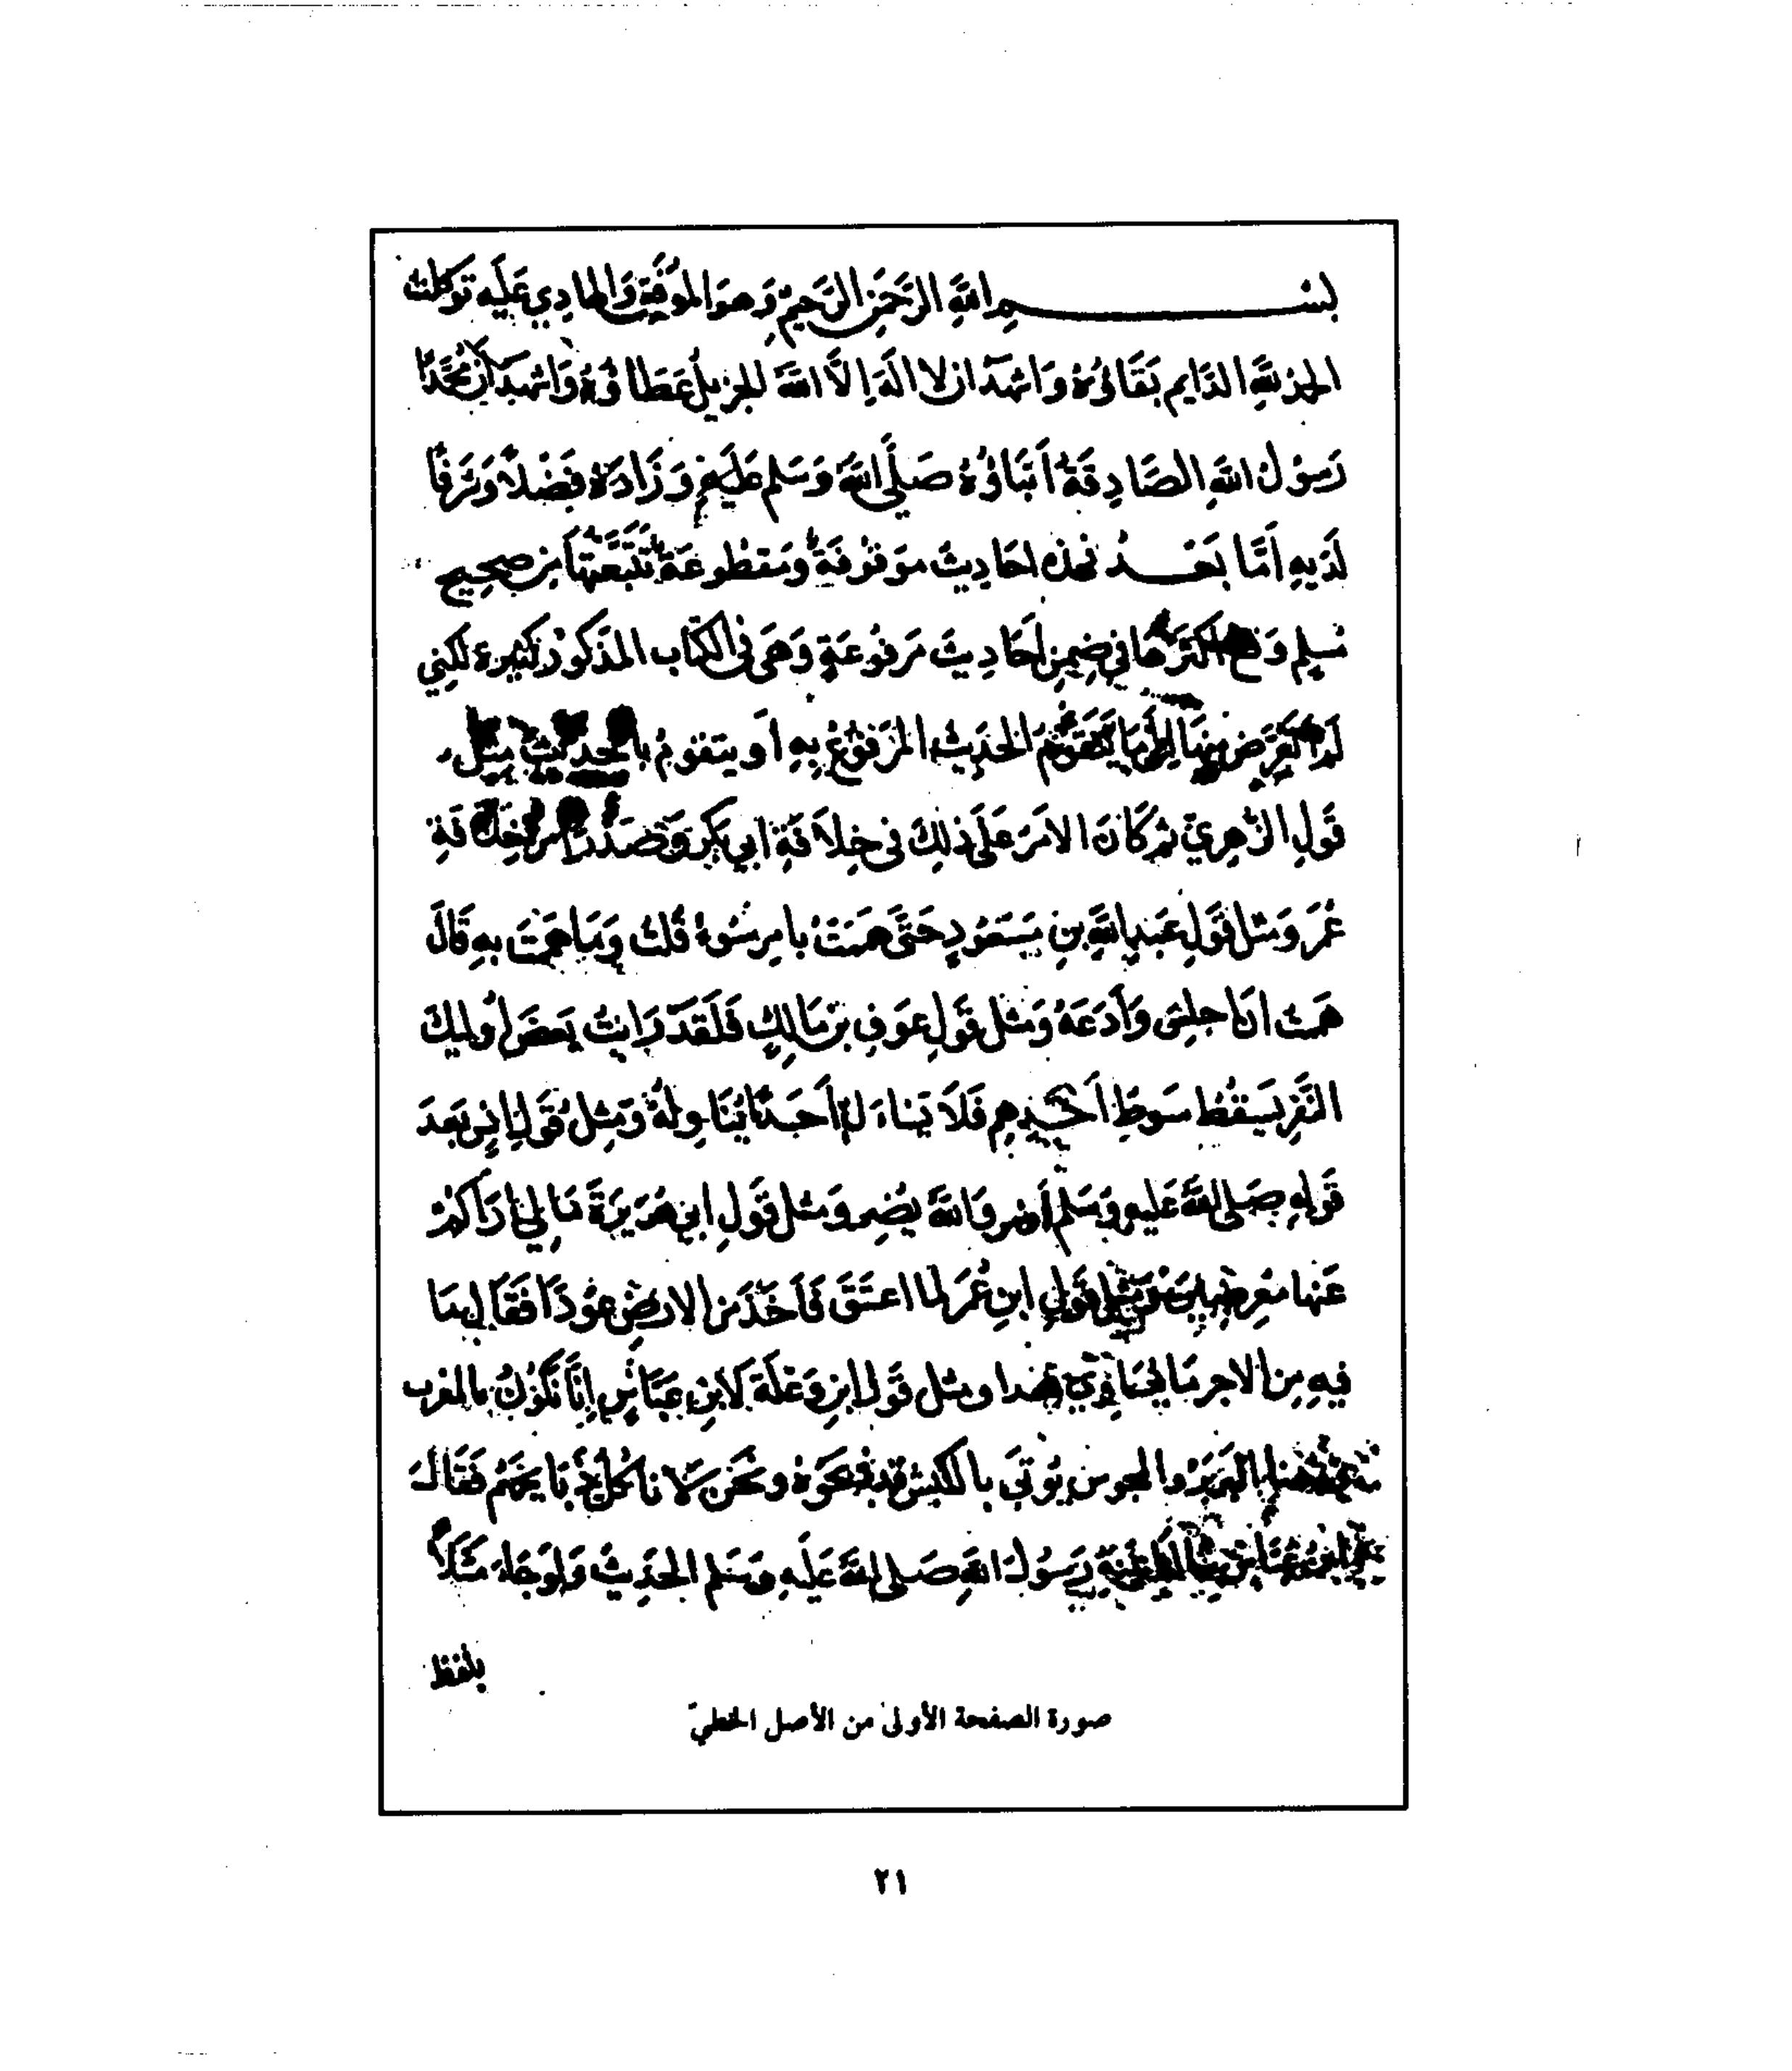 بسم الله الرحمن الرحيم وهو الموفق والهادي عليه توكلت
الحمد لله الدايم بقاؤه واشهد ان لا اله الا الله الجزيل عطاؤه واشهد أن محمدًا
رسول الله الصادقة أنباؤه صلى الله وسلم عليه وزاده فضلا وشرفا
لديه أما بعد فهذه احاديث موقوفة ومقطوعة تتبعتها من صحيح
مسلم وقع أكثرها في ضمن أحاديث مرفوعة وهي في الكتاب المذكور كثيرة لكني
الحديث المرفوع به أو يتقوم بالحديث مثل
قول الزهري ثم كان الامر على ذلك في خلافة ابي بكر وصدرا من خلافة
عمر ومثل قول عبد الله بن مسعود حتى هممت بامر سوء قلت وما هممت به قال
هممت ان اجلس وأدعه ومثل قول عوف بن مالك فلقد رايت بعض أوليك
النفر يسقط سوط أحدهم فلا يسأل أحدا يناوله ومثل قول انس بعد
قوله صلى الله عليه وسلم ومثل قول ابي هريرة مالي اراكم
عنها معرضين ومثل قول ابن عمر لما اعتق فأخذ من الارض عودا فقال ما
فيه من الاجر ما يساوي هذا ومثل قول ابن وعلة لابن عباس إنا نكون بالمغرب
البربر والمجوس يوتى بالكبش قد ذبحوه ونحن لا ناكل ذبايحهم فقال
ابن عباس رسول الله صلى الله عليه وسلم الحديث ولو جاء مثلا
بلفظ
صورة الصفحة الأولى من الأصل الخطيّ
٢١